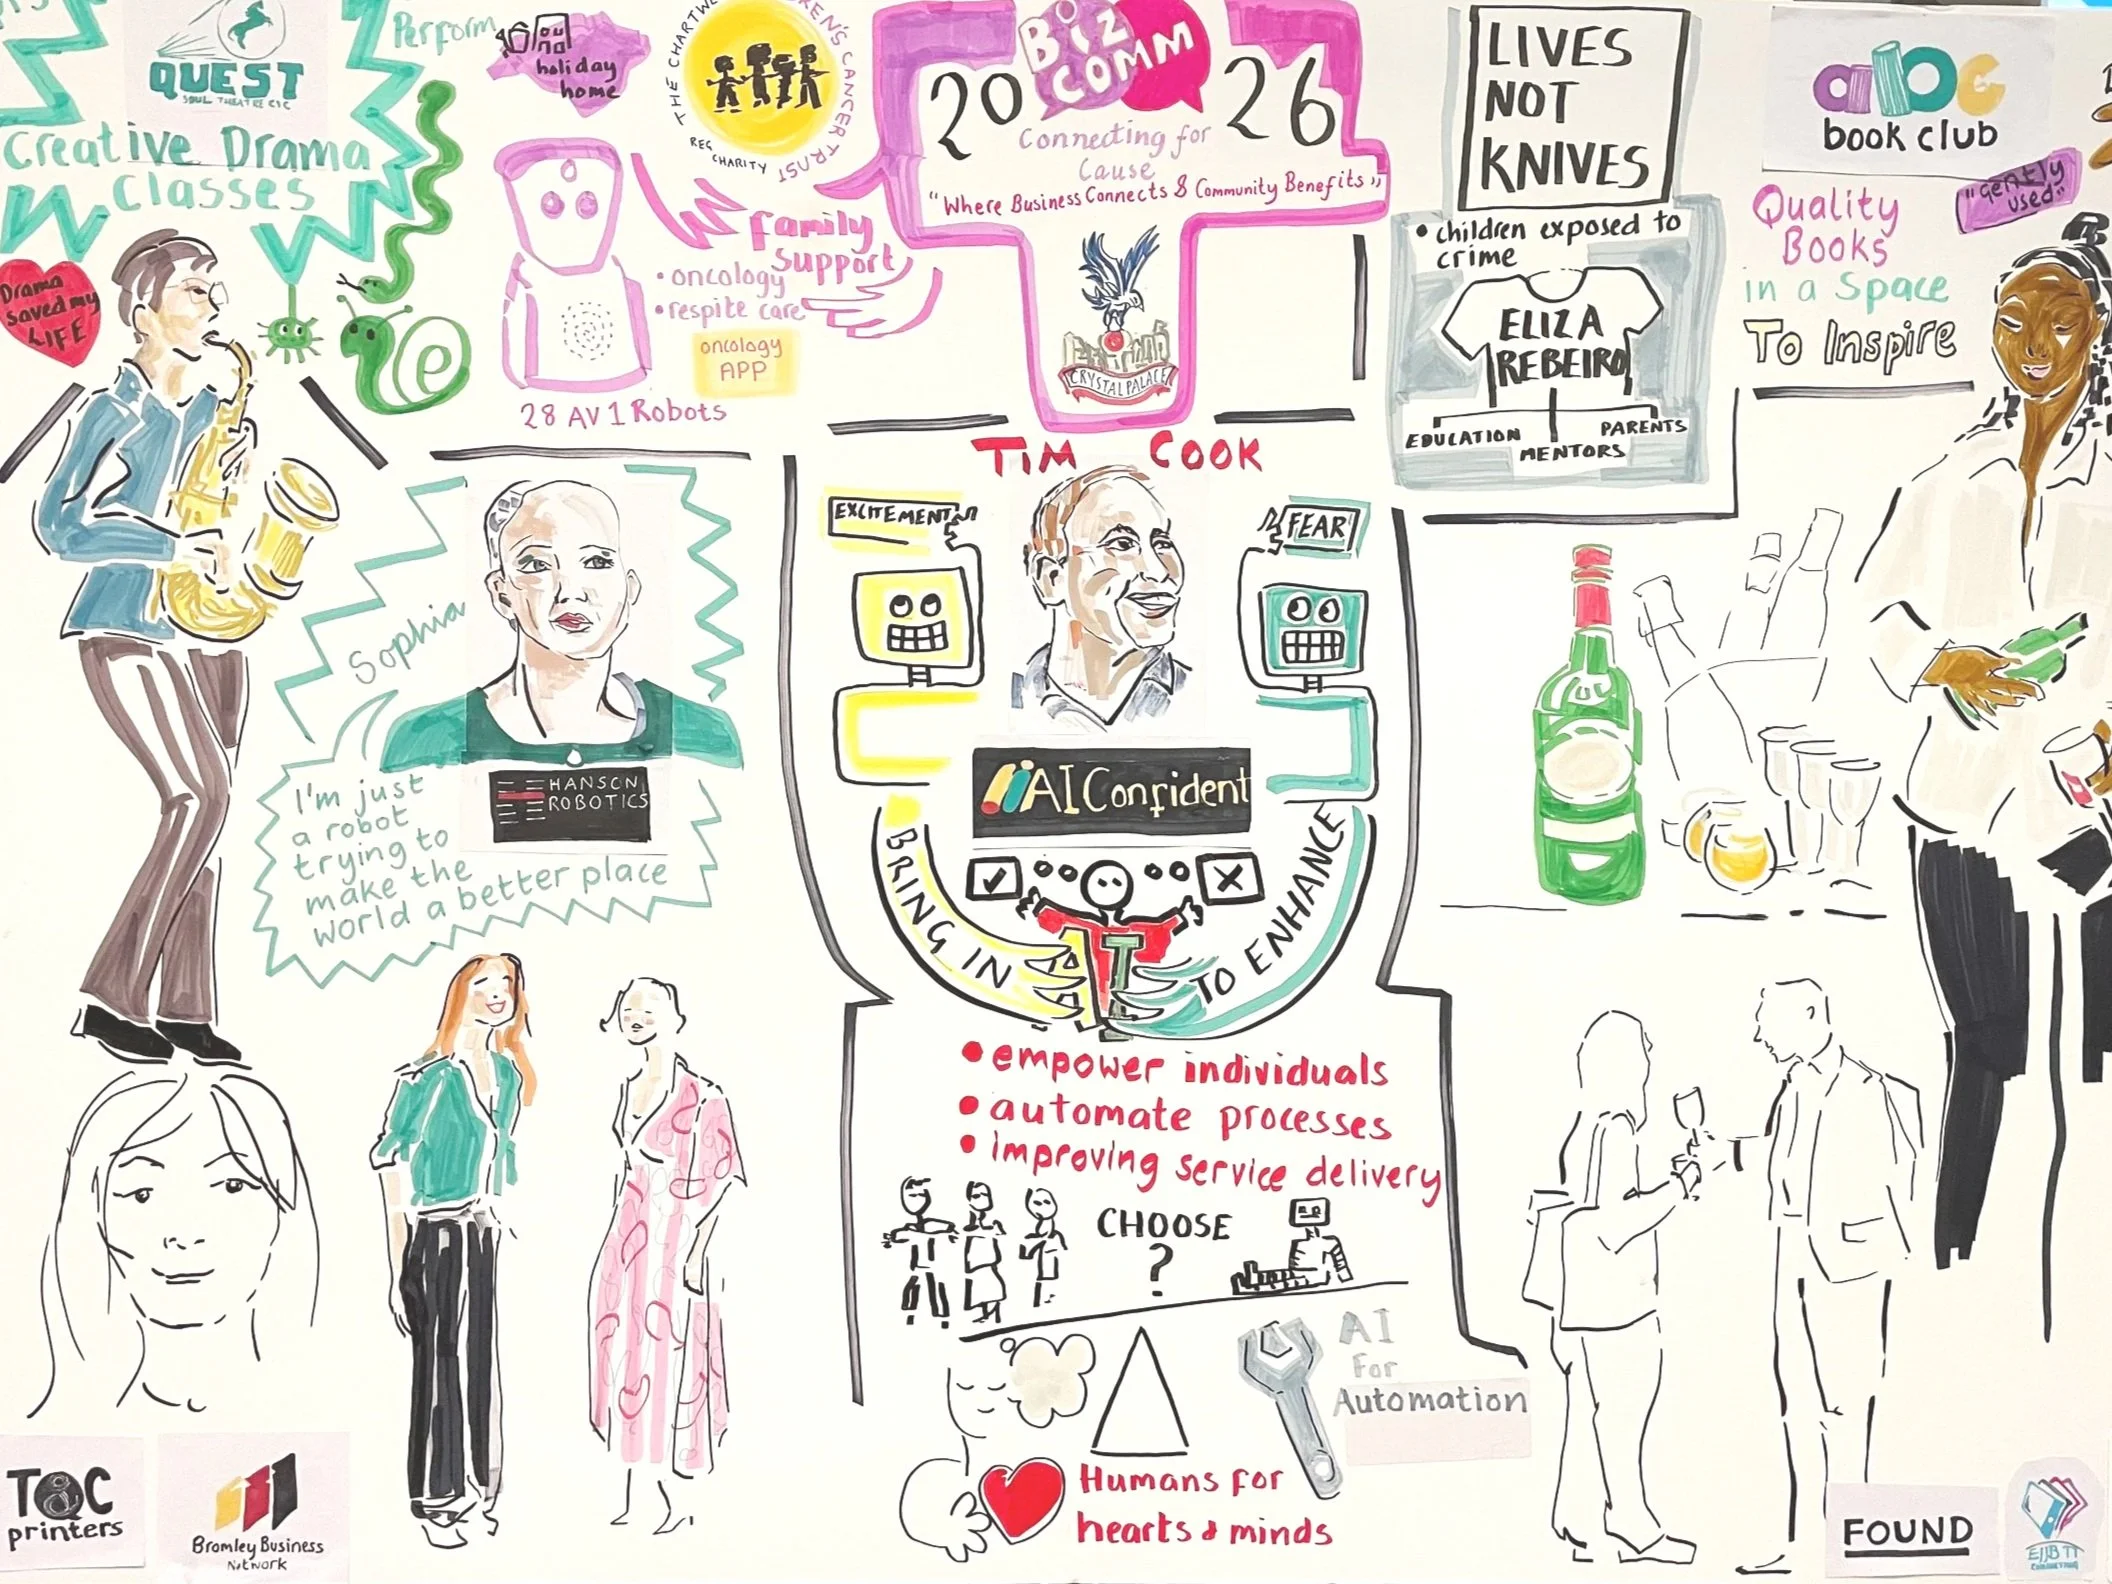 QUEST
SOUL THEATRE CIC
Creative Drama
Classes
Perform
Drama
saved my
LIFE
holiday
home
THE CHARTWELL CHILDREN'S CANCER TRUST
REG CHARITY
family
support
• oncology
• respite care
oncology
APP
28 AV1 Robots
BIZ
COMM
20 26
Connecting for
Cause
"Where Business Connects & Community Benefits"
CRYSTAL PALACE
LIVES
NOT
KNIVES
• children exposed to
crime
ELIZA
REBEIRO
EDUCATION
MENTORS
PARENTS
book club
"gently
used"
Quality
Books
in a Space
To Inspire
Sophia
HANSON
ROBOTICS
I'm just
a robot
trying to
make the
world a better place
TIM COOK
EXCITEMENT
FEAR
AI Confident
BRING IN
TO ENHANCE
• empower individuals
• automate processes
• improving service delivery
CHOOSE
?
AI
For
Automation
Humans for
hearts & minds
T&C
printers
Bromley Business
Network
FOUND